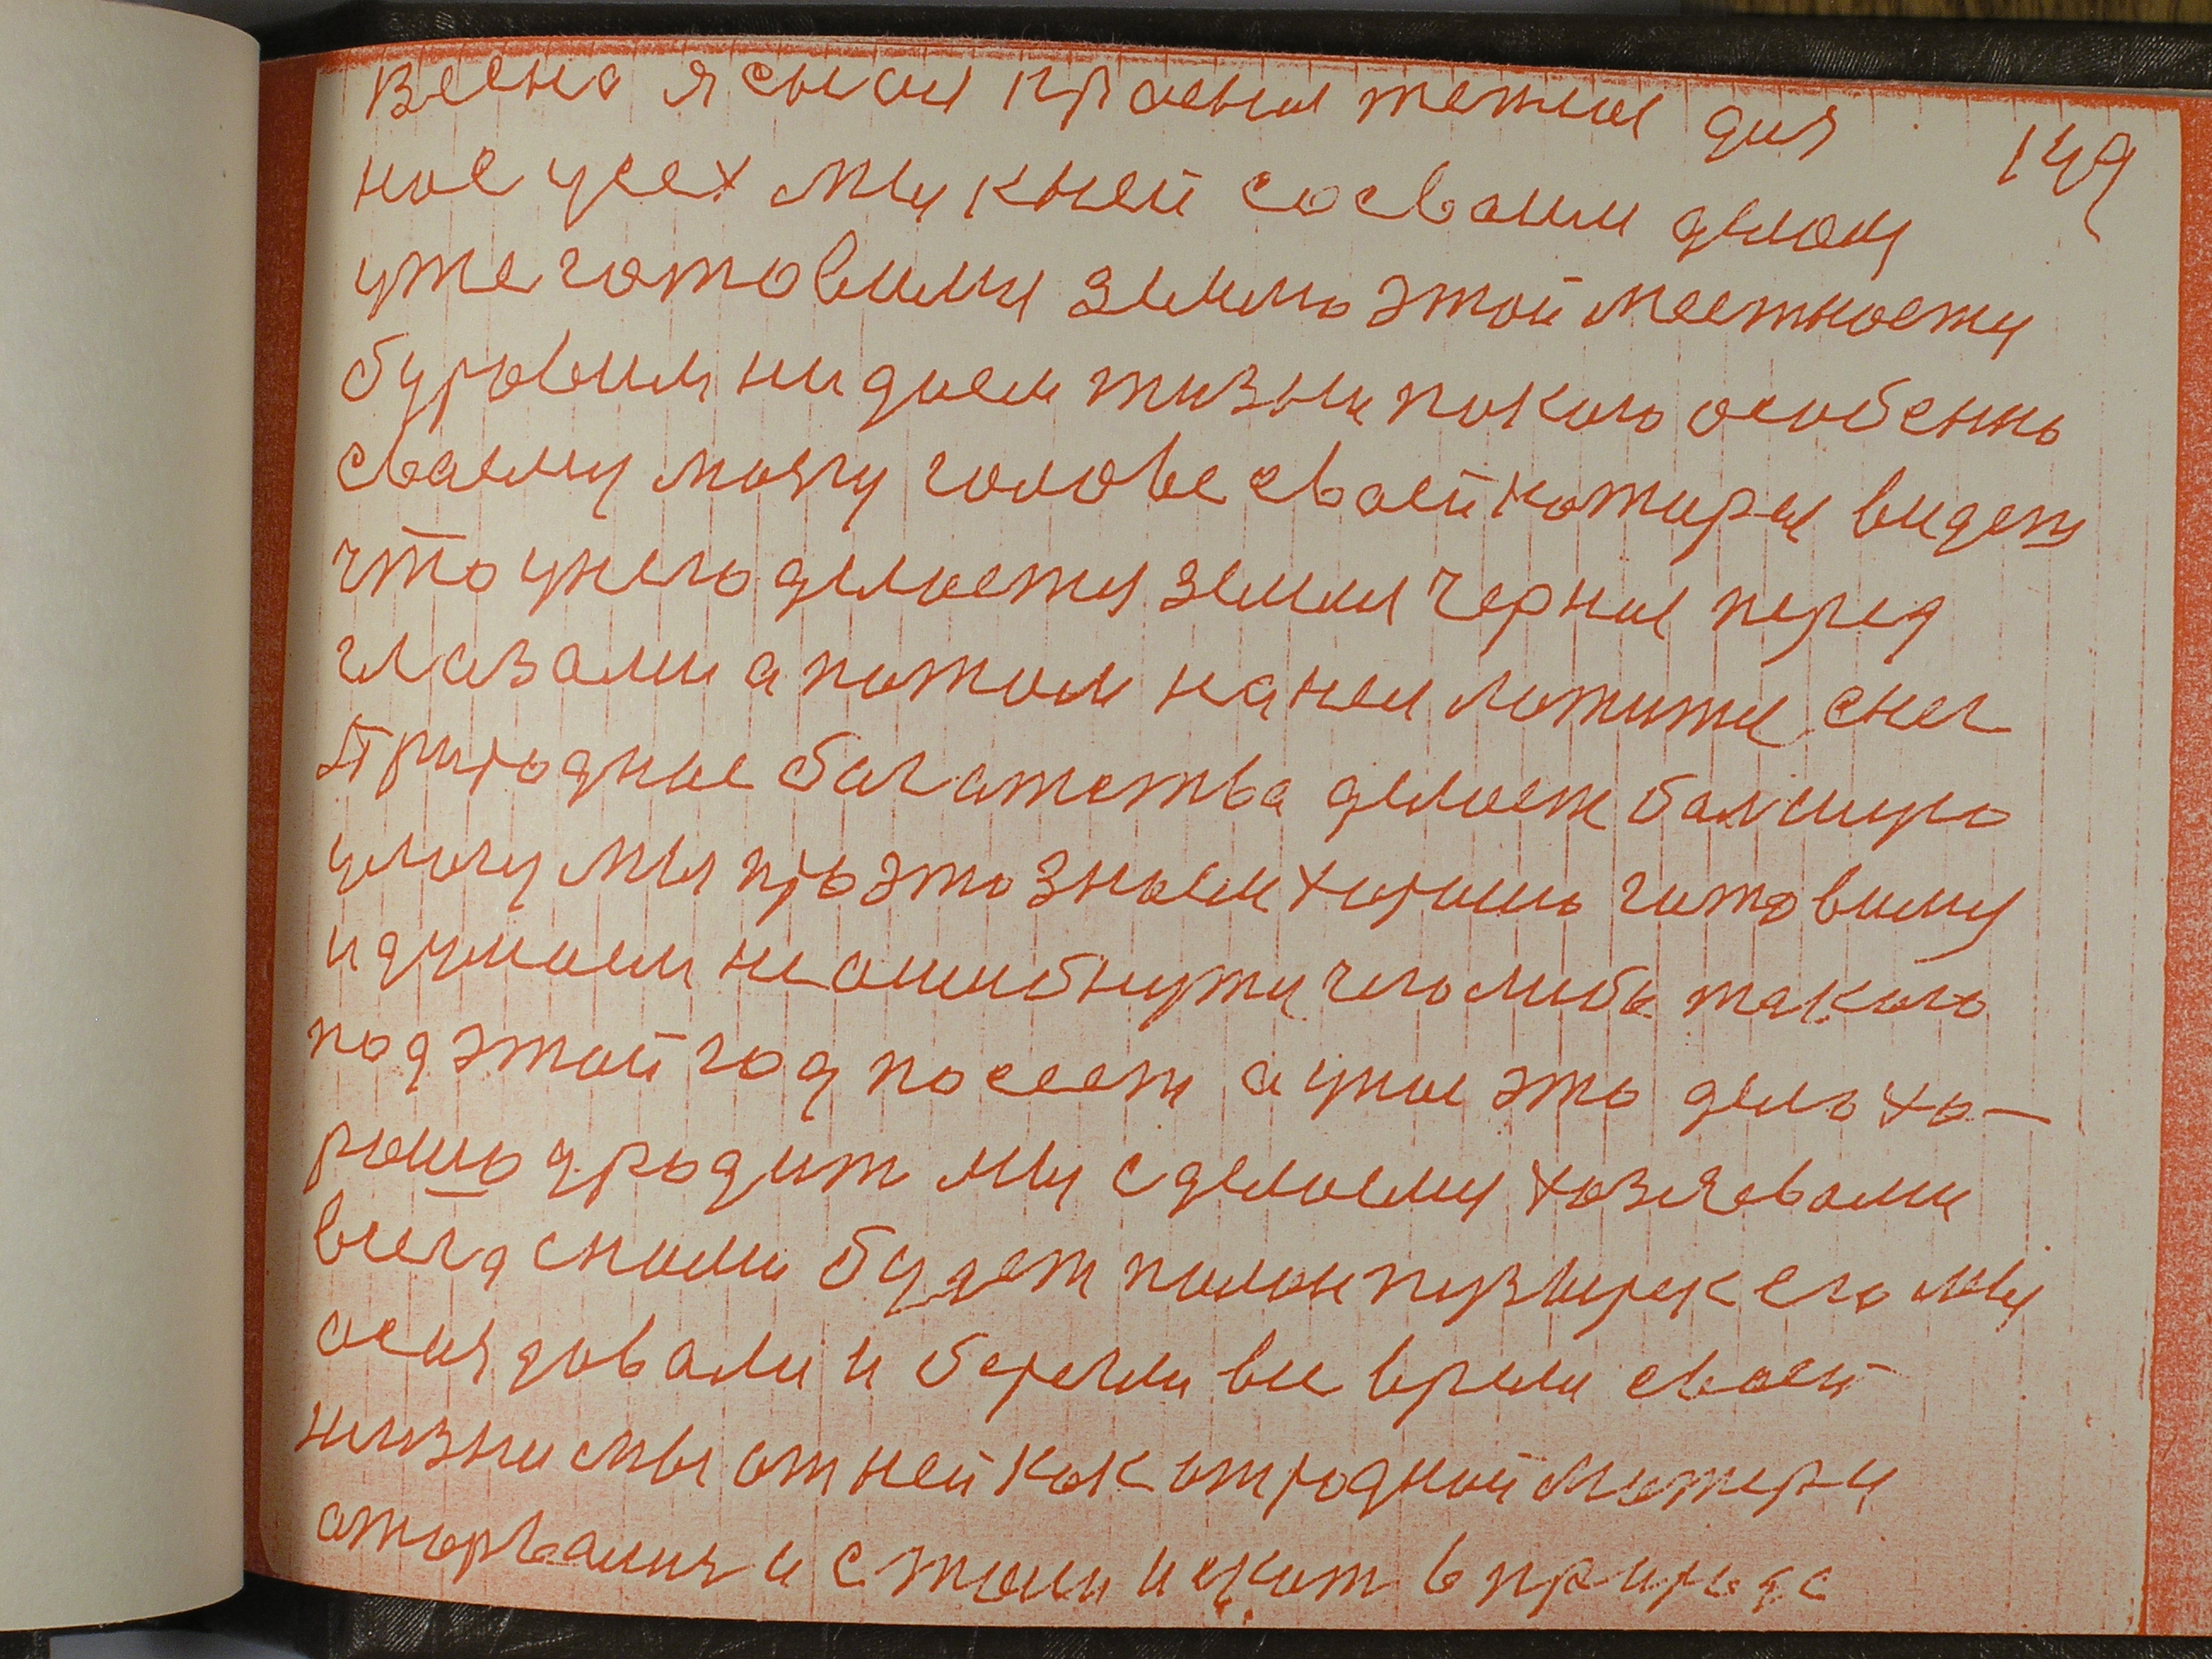 Весна ясная красная тежная для
149
нас усех мы кней сосваим делом
уже готовимы землю этой местносты
буровим ни даем жизни покою особенно
сваему мозгу голове сваей каторая видет
что унего делается земля черная перед
глазами а потом на нея ложится снег
Природные багатства делает балшую
услугу мы про это знаем хорошо готовимы
и думаем не ошибнуты чего либо такого
под этой год посеет а унас это дело хо-
рошо уродит мы сделаемы хозяевами
всегда снами будет полон пузырек его мы
осиядовали и берегли все время сваей
жизни мы от ней как от родной матери
аторвалися и стали искат в природе